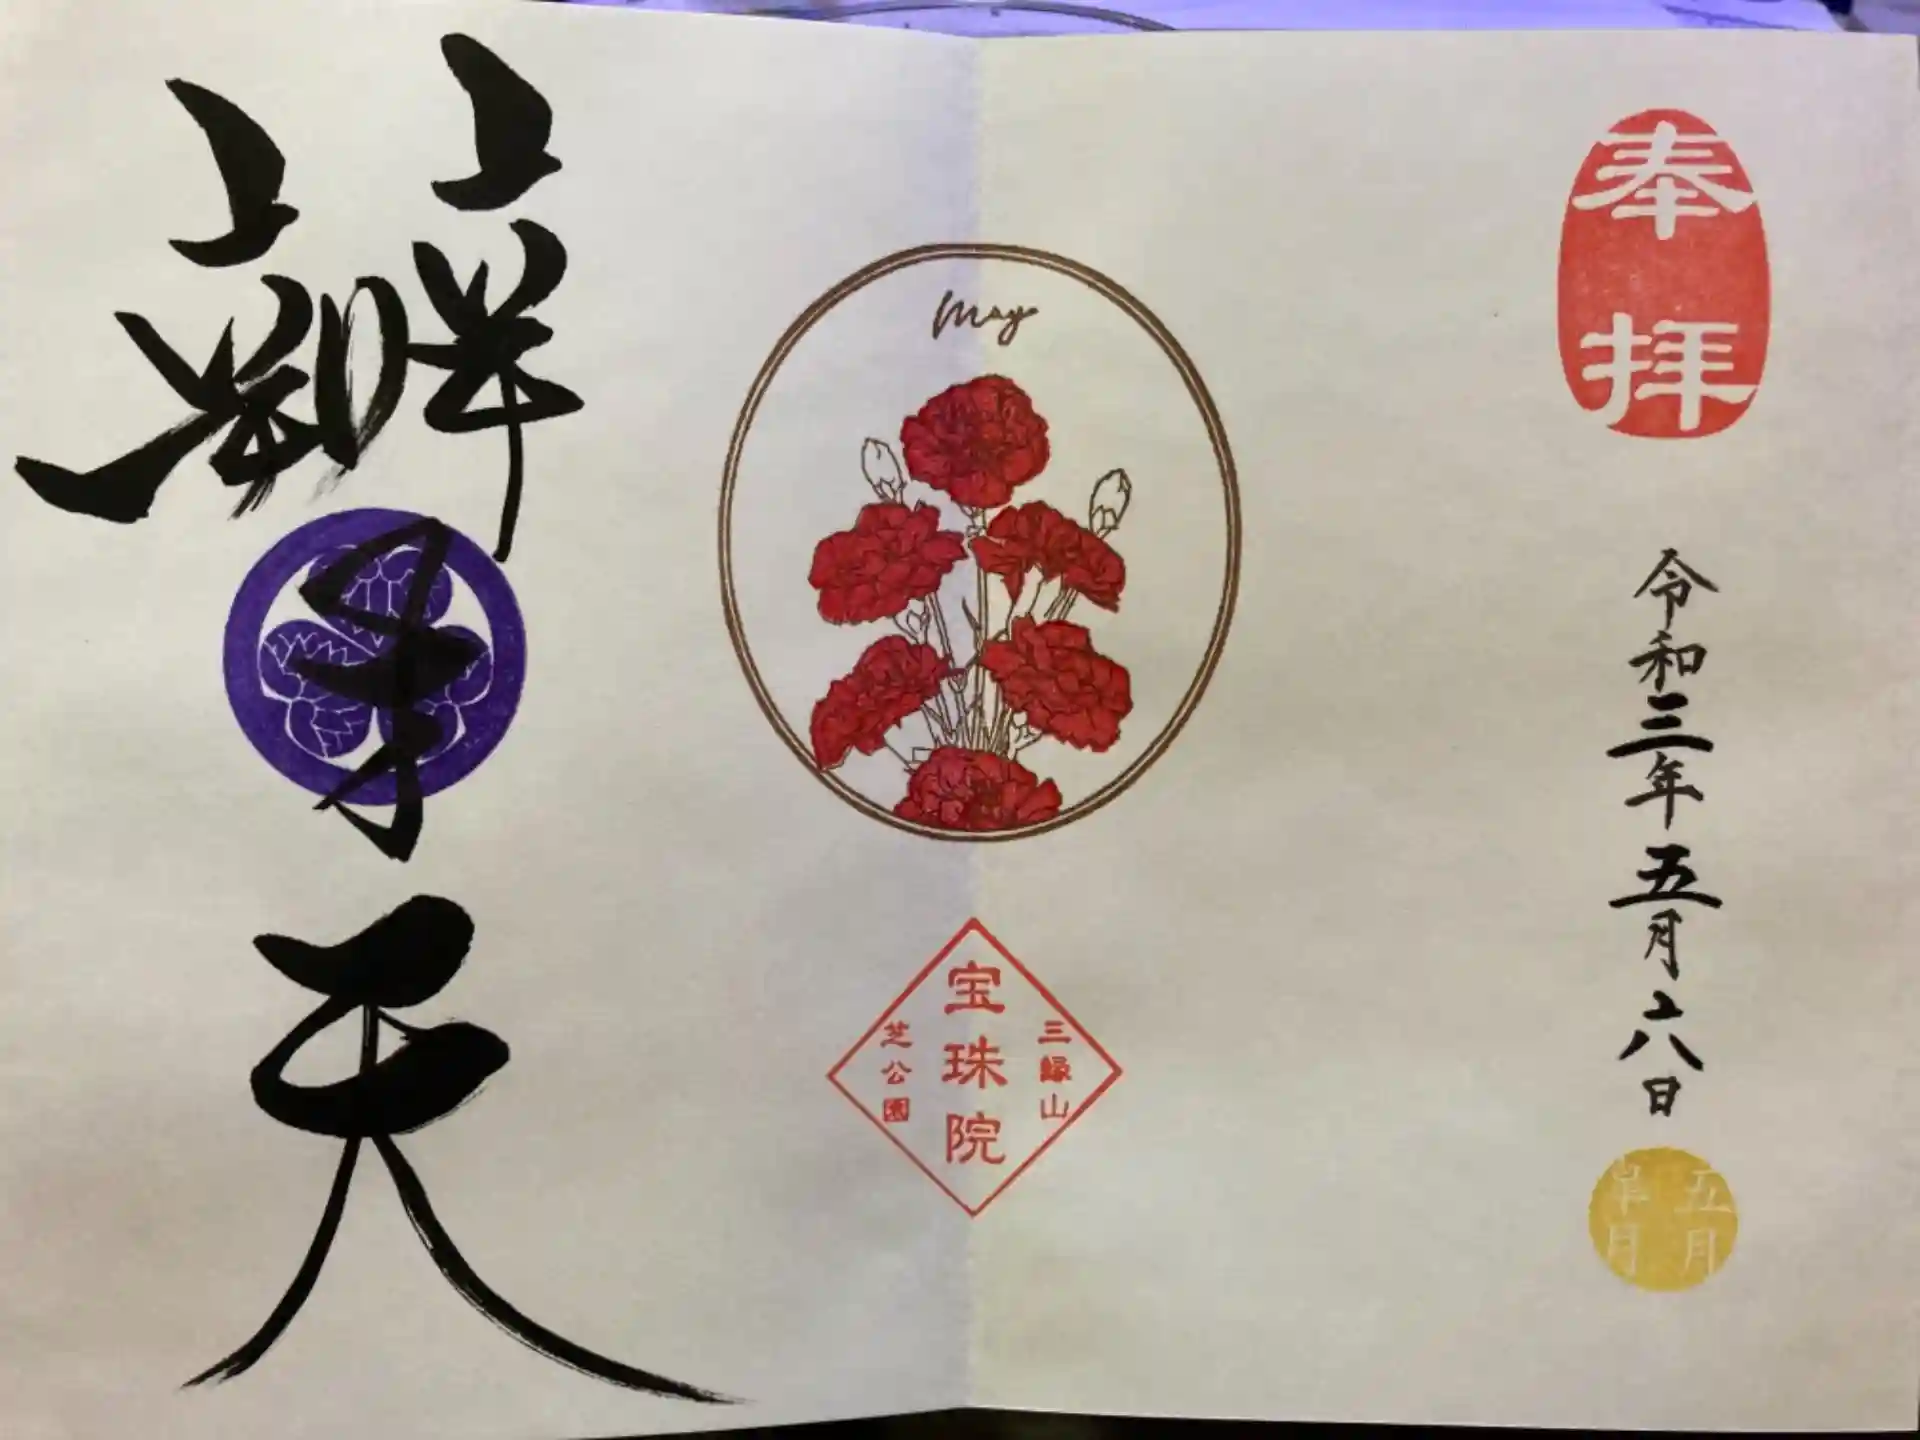 奉拝
令和三年五月六日
五月
皐月
May
三縁山
宝珠院
芝公園
辨才天